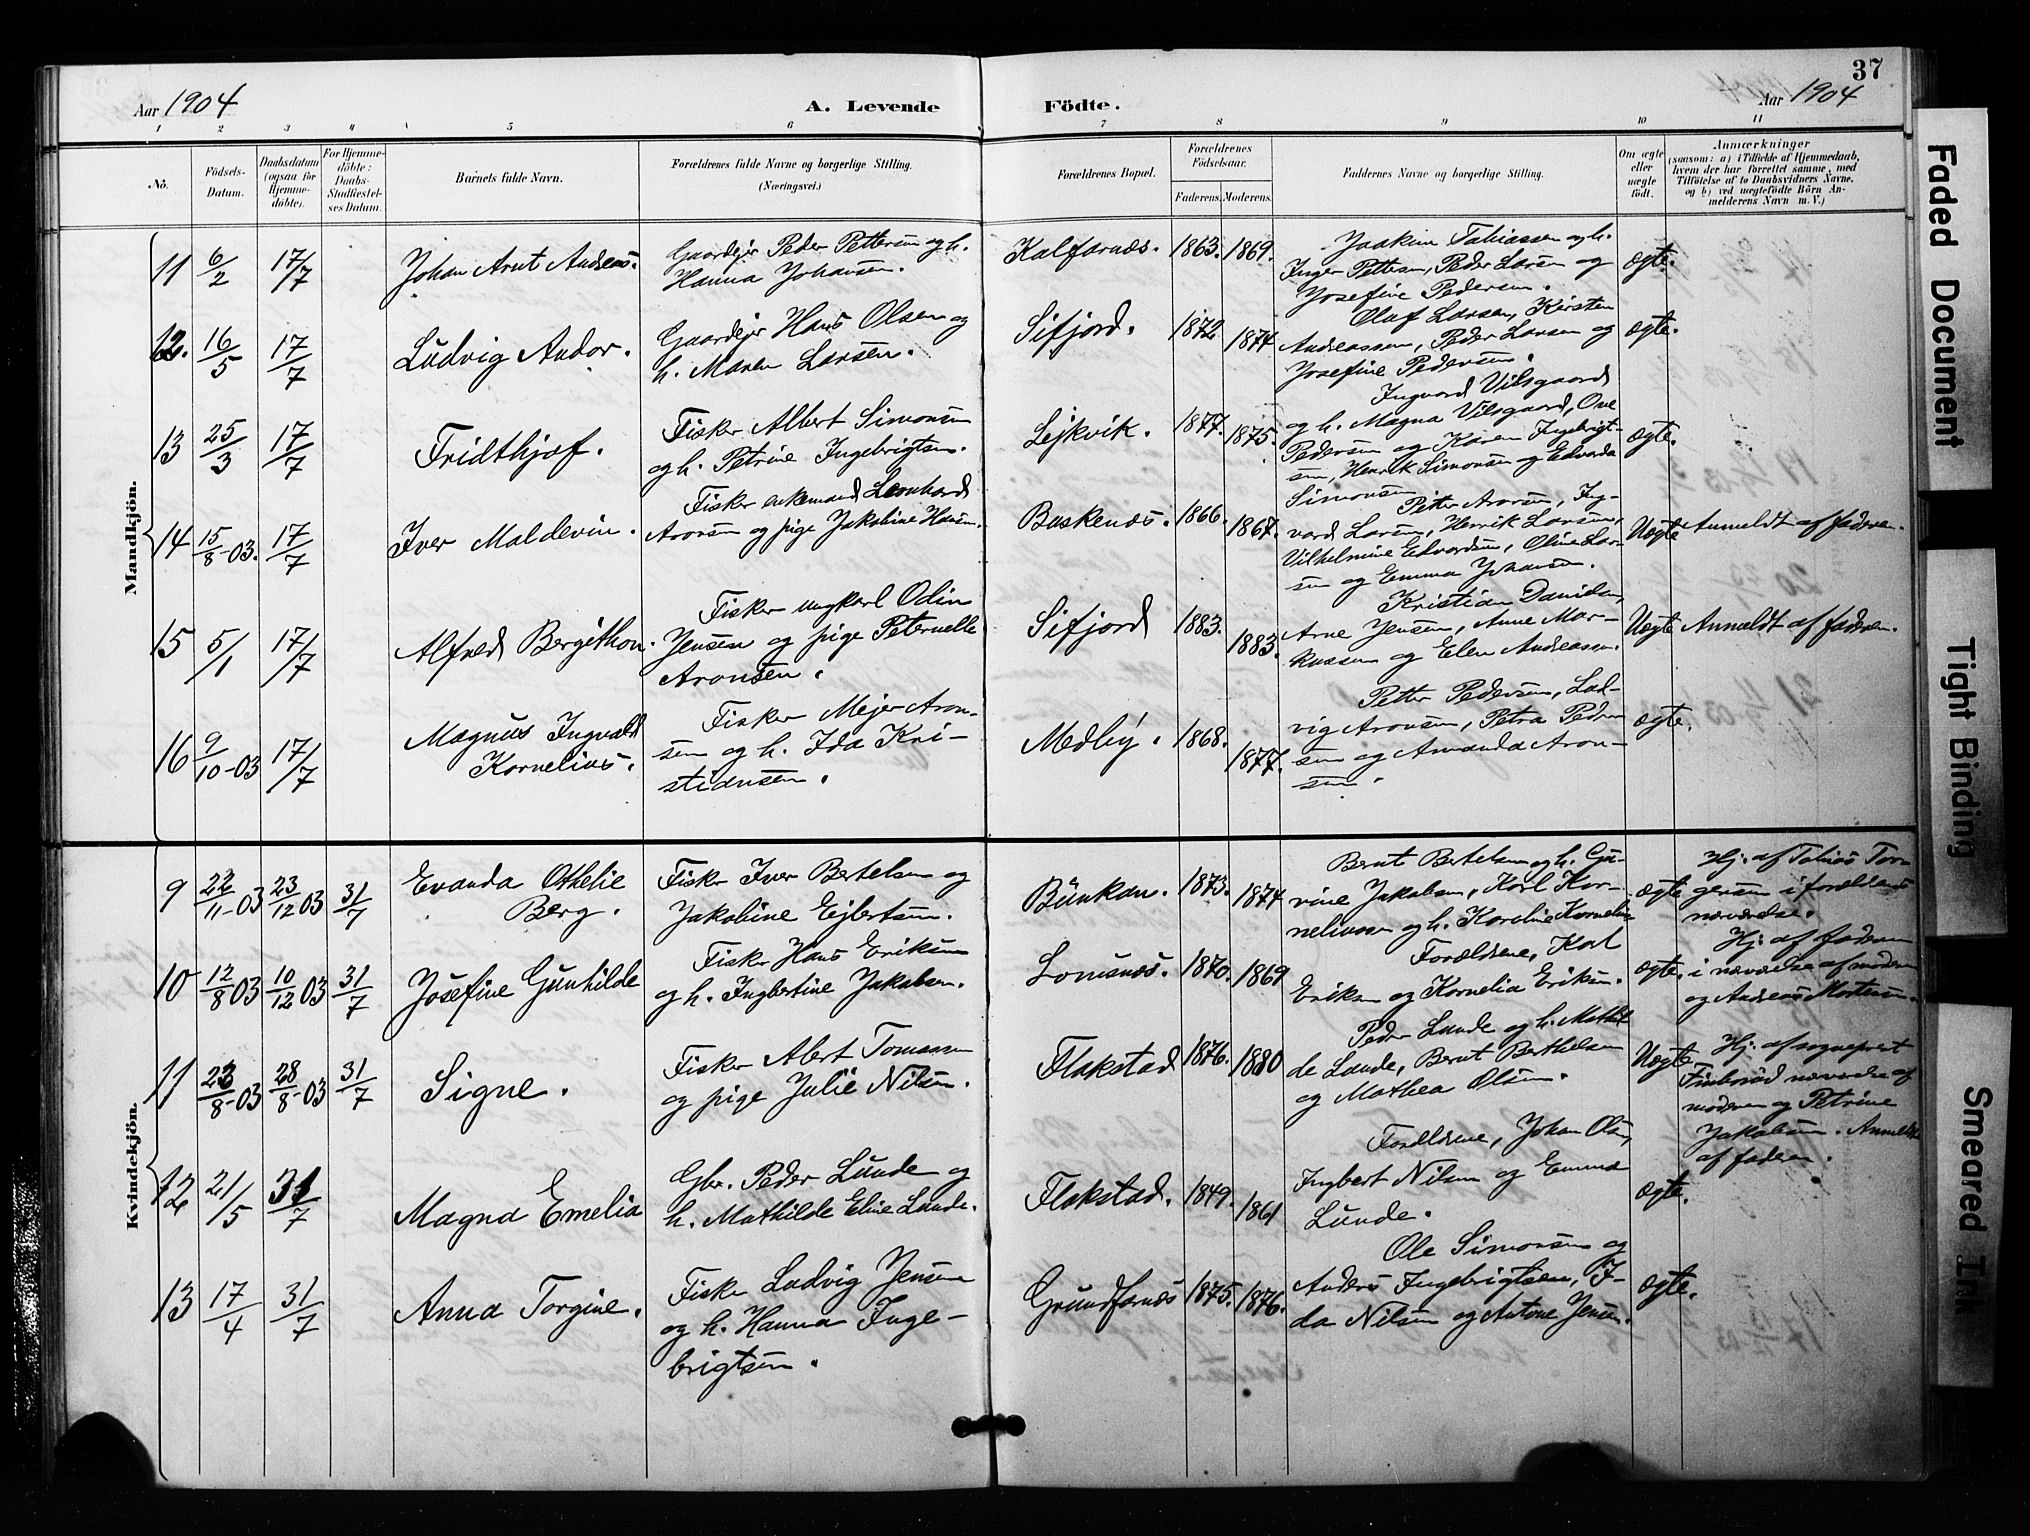 37
Aar 1904 A. Levende Födte. Aar 1904
1 2 3 4 5 6 7 8 9 10 11
No.
Födsels-
Datum.
Daabsdatum
(ogsaa for
Hjemme-
döbte).
For Hjemme-
döbte:
Daabs-
Stadfæstel-
ses Datum.
Barnets fulde Navn.
Forældrenes fulde Navne og borgerlige Stilling.
(Næringsvei.)
Forældrenes Bopæl.
Forældrenes
Födselsaar.
Faderens. Moderens.
Faddernes Navne og borgerlige Stilling.
Om ægte
eller
uægte
født.
Anmærkninger
(saasom: a) i Tilfælde af Hjemmedaab,
hvem der har forrettet samme, med
Tilföielse af to Daabsvidners Navne.
og b) ved uægtefödte Börn An-
melderens Navn m. V.)
Mandkjön.
11 6/2 17/7
Johan Arnt Andreas.
Gaardejr Peder Pettersen og h.
Hanna Johansen.
Kalfarnæs. 1863. 1869.
Joakim Tobiassen og h.
Inger Pettersen, Peder Larsen og
Josefine Pedersen.
ægte.
12. 16/5 17/7
Ludvig Andor.
Gaardejr Hans Olsen og
h. Maren Larsen.
Sifjord. 1872 1874
Oluf Larsen, Kirsten
Andreassen, Peder Larsen og
Josefine Pedersen.
ægte.
13 25/3 17/7
Fridthjof.
Fisker Albert Simonsen
og h. Petrine Ingebrigtsen.
Lejkvik. 1877. 1875.
Ingvard Vilsgaard
og h. Magna Vilsgaard, Ove
Pedersen og Karen Ingebrigt-
sen, Henrik Simonsen og Edvarda
Simonsen
ægte.
14 15/8-03. 17/7
Iver Maldevin.
Fisker enkemand Leonhard
Aronsen og pige Jakobine Hansen.
Baskenæs. 1866. 1867.
Peter Aronsen, Ing-
vard Larsen, Henrik Larsen,
Vilhelmine Edvardsen, Oline Lar-
sen og Emma Johansen.
Uægte Anmeldt af faderen.
15 5/1 17/7
Alfred Bergithon.
Fisker ungkarl Odin
Jensen og pige Peternelle
Aronsen.
Sifjord 1883. 1883.
Kristian Danielsen,
Arne Jensen, Anne Mar-
kussen og Elen Andreassen.
Uægte Anmeldt af faderen.
16 9/10-03 17/7
Magnus Ingvald
Kornelius.
Fisker Mejer Aron-
sen og h. Ida Kri-
stiansen.
Medby. 1868. 1877.
Petter Pedersen, Lud-
vig Aronsen, Petra Peder
sen og Amanda Aron-
sen.
ægte.
Kvindekjön.
9 22/11-03 23/12 03 31/7
Evanda Othelie
Berg.
Fisker Iver Bertelsen og
Jakobine Ejlertsen.
Bunkan. 1873. 1874
Bernt Bertelsen og h. Gu-
vine Jakobsen, Karl Kor-
neliussen og h. Karoline Kornelius
ægte
Hj. af Tobias Tor-
gersen i forældrenes
nærværelse.
10 12/8 03 10/12 03 31/7
Josefine Gunhilde
Fisker Hans Eriksen
og h. Ingbertine Jakobsen.
Lomsnæs. 1870. 1869
Forældrene, Karl
Eriksen og Kornelia Eriksen.
ægte.
Hj. af faderen
i nærværelse af moderen
og Andreas Mortensen.
11 23/8-03 28/8-03 31/7
Signe.
Fisker Albert Tomassen
og pige Julie Nilsen.
Flakstad 1876. 1880
Peder Lunde og h. Mathil
de Lunde, Bernt Berthelsen
og Mathea Olsen.
Uægte
Hj. af sogneprest
nærværelse af
moderen og Petrine
Jakobsen. Anmeldt
af faderen.
12 21/5 31/7
Magna Emelia
Gbr. Peder Lunde og
h. Mathilde Eline Lunde.
Flakstad. 1849. 1861
Forældrene, Johan Olsen,
Ingbert Nilsen og Emma
Lunde.
ægte.
13 17/4 31/7
Anna Torgine.
Fisker Ludvig Jensen
og h. Hanna Inge-
brigtsen.
Grundfarnæs 1875. 1876.
Ole Simonsen og
Anders Ingebrigtsen, I-
da Nilsen og Antone Jensen.
ægte.
Faded Document
Tight Binding
Smeared Ink